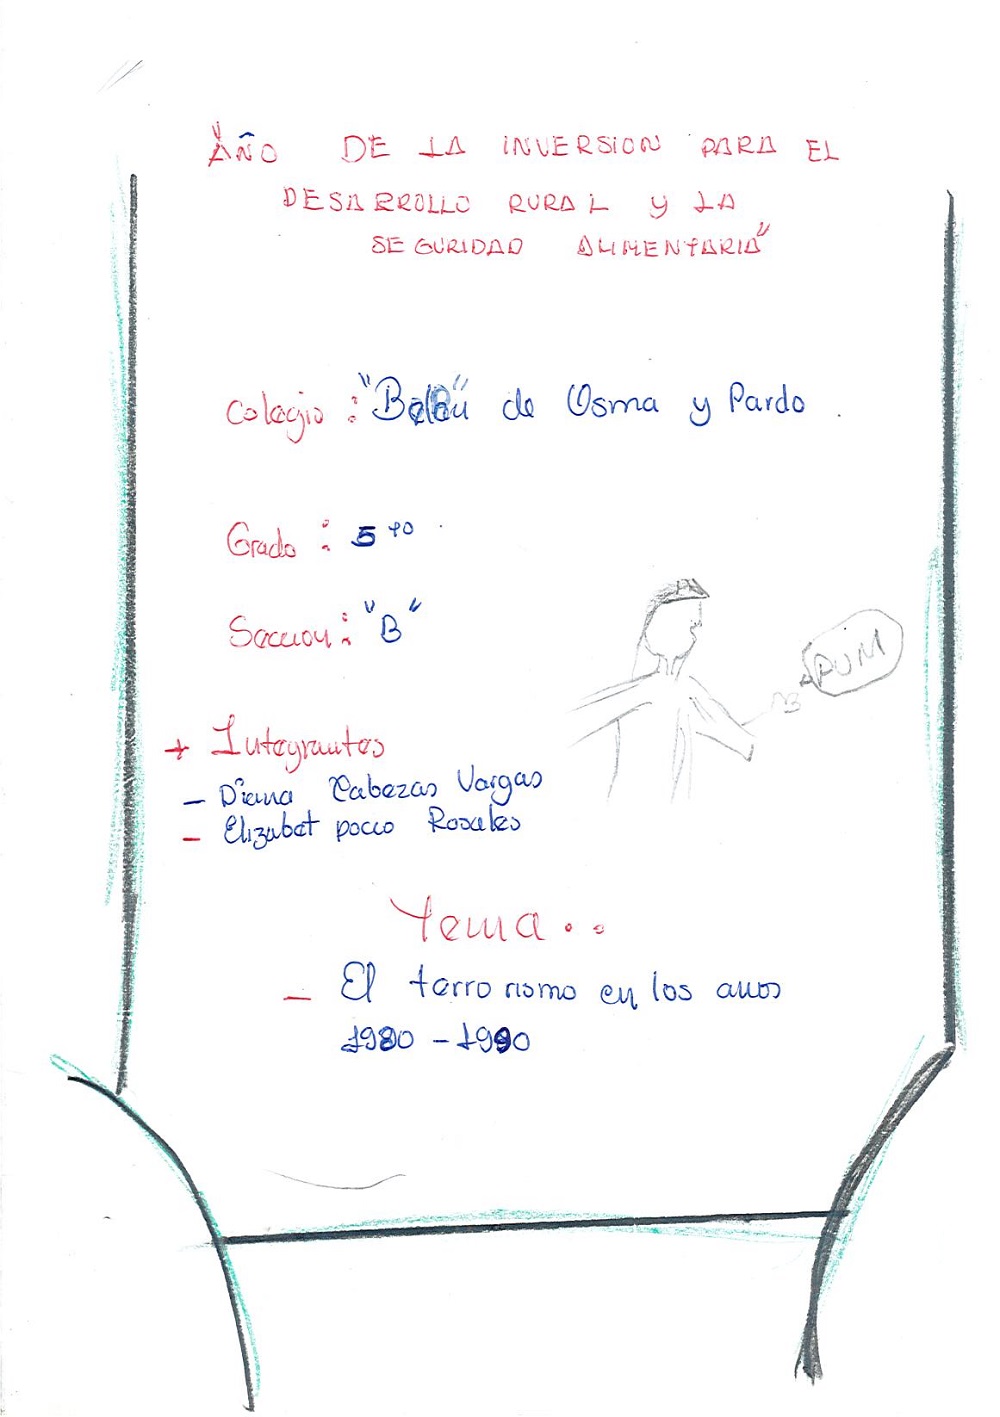 "AÑO DE LA INVERSION PARA EL
DESARROLLO RURAL Y LA
SEGURIDAD ALIMENTARIA"
Colegio : "Belén" de Osma y Pardo.
Grado : 5to
Seccion : "B"
PUM
+ Integrantes
- Diana Cabezas Vargas
- Elizabet pocco Rosales
Tema..
- El terrorismo en los anos
1980 - 1990